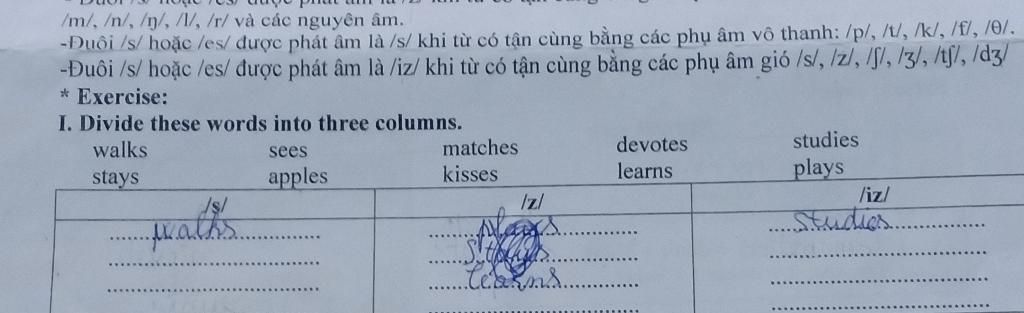 /m/, /n/, /ŋ/, /l/, /r/ và các nguyên âm.
-Đuôi /s/ hoặc /es/ được phát âm là /s/ khi từ có tận cùng bằng các phụ âm vô thanh: /p/, /t/, /k/, /f/, /θ/.
-Đuôi /s/ hoặc /es/ được phát âm là /iz/ khi từ có tận cùng bằng các phụ âm gió /s/, /z/, /ʃ/, /ʒ/, /tʃ/, /dʒ/
* Exercise:
I. Divide these words into three columns.
walks sees matches devotes studies
stays apples kisses learns plays
/s/ /z/ /iz/
walks plays studies
learns